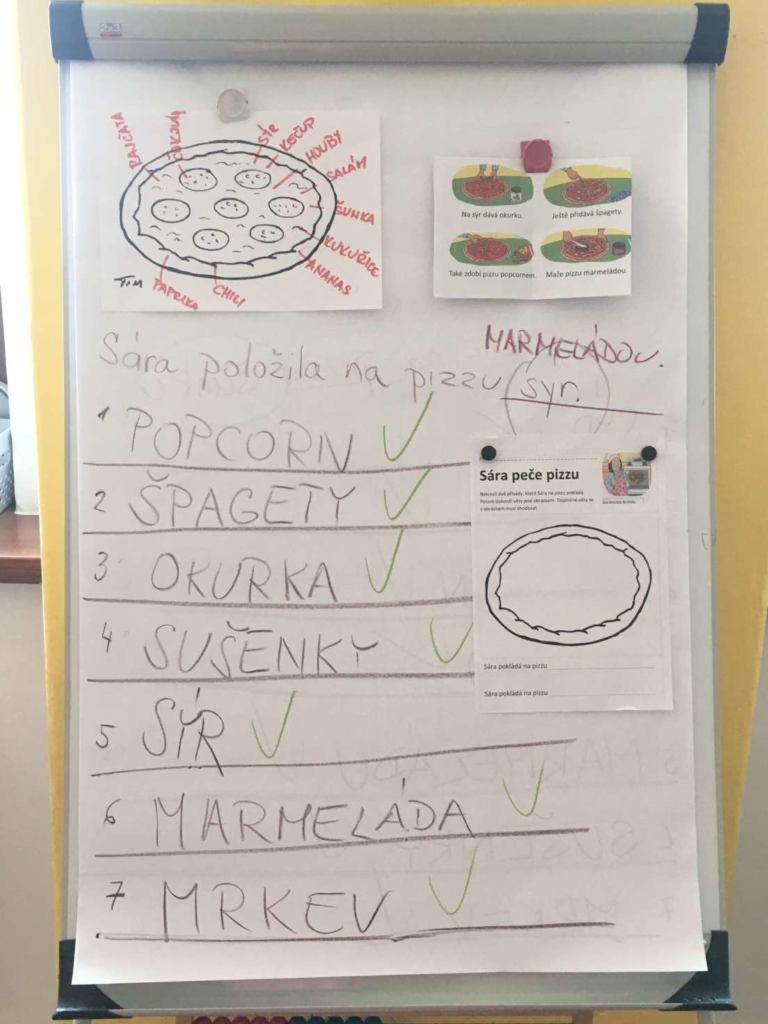 RAJČATA
SÝR
KEČUP
HOUBY
SALÁM
ŠUNKA
KUKUŘICE
ANANAS
CHILI
PAPRIKA
TOM
Na sýr dává okurku.
Ještě přidává špagety.
Také zdobí pizzu popcornem.
Maže pizzu marmeládou.
MARMELÁDOU.
Sára položila na pizzu syr.
1 POPCORN
2 ŠPAGETY
3 OKURKA
4 SUŠENKY
5 SÍR
6 MARMELÁDA
7 MRKEV
Sára peče pizzu
Sára pokládá na pizzu
Sára pokládá na pizzu